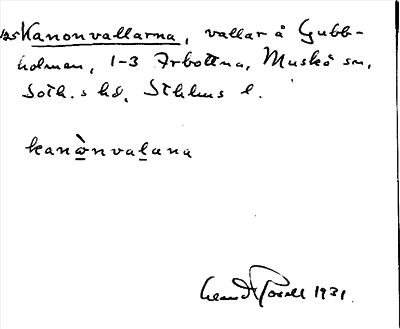 Kanonvallarna, vallar å Gubb-
holmen, 1-3 Arbottna, Muskö sn,
Soth.s hd, Sthlms l.
kanònvalana
1931.